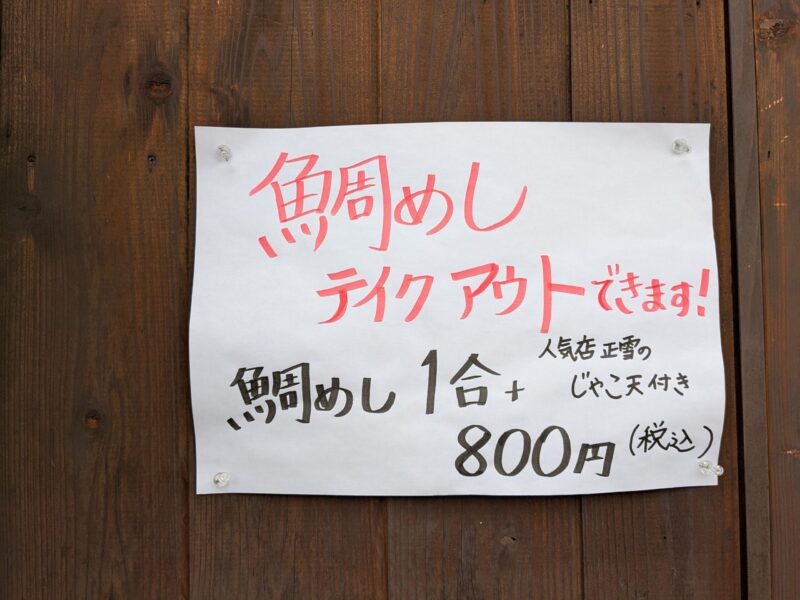 鯛めし
テイクアウトできます!
人気店正雪の
じゃこ天付き
鯛めし 1合+
800円(税込)